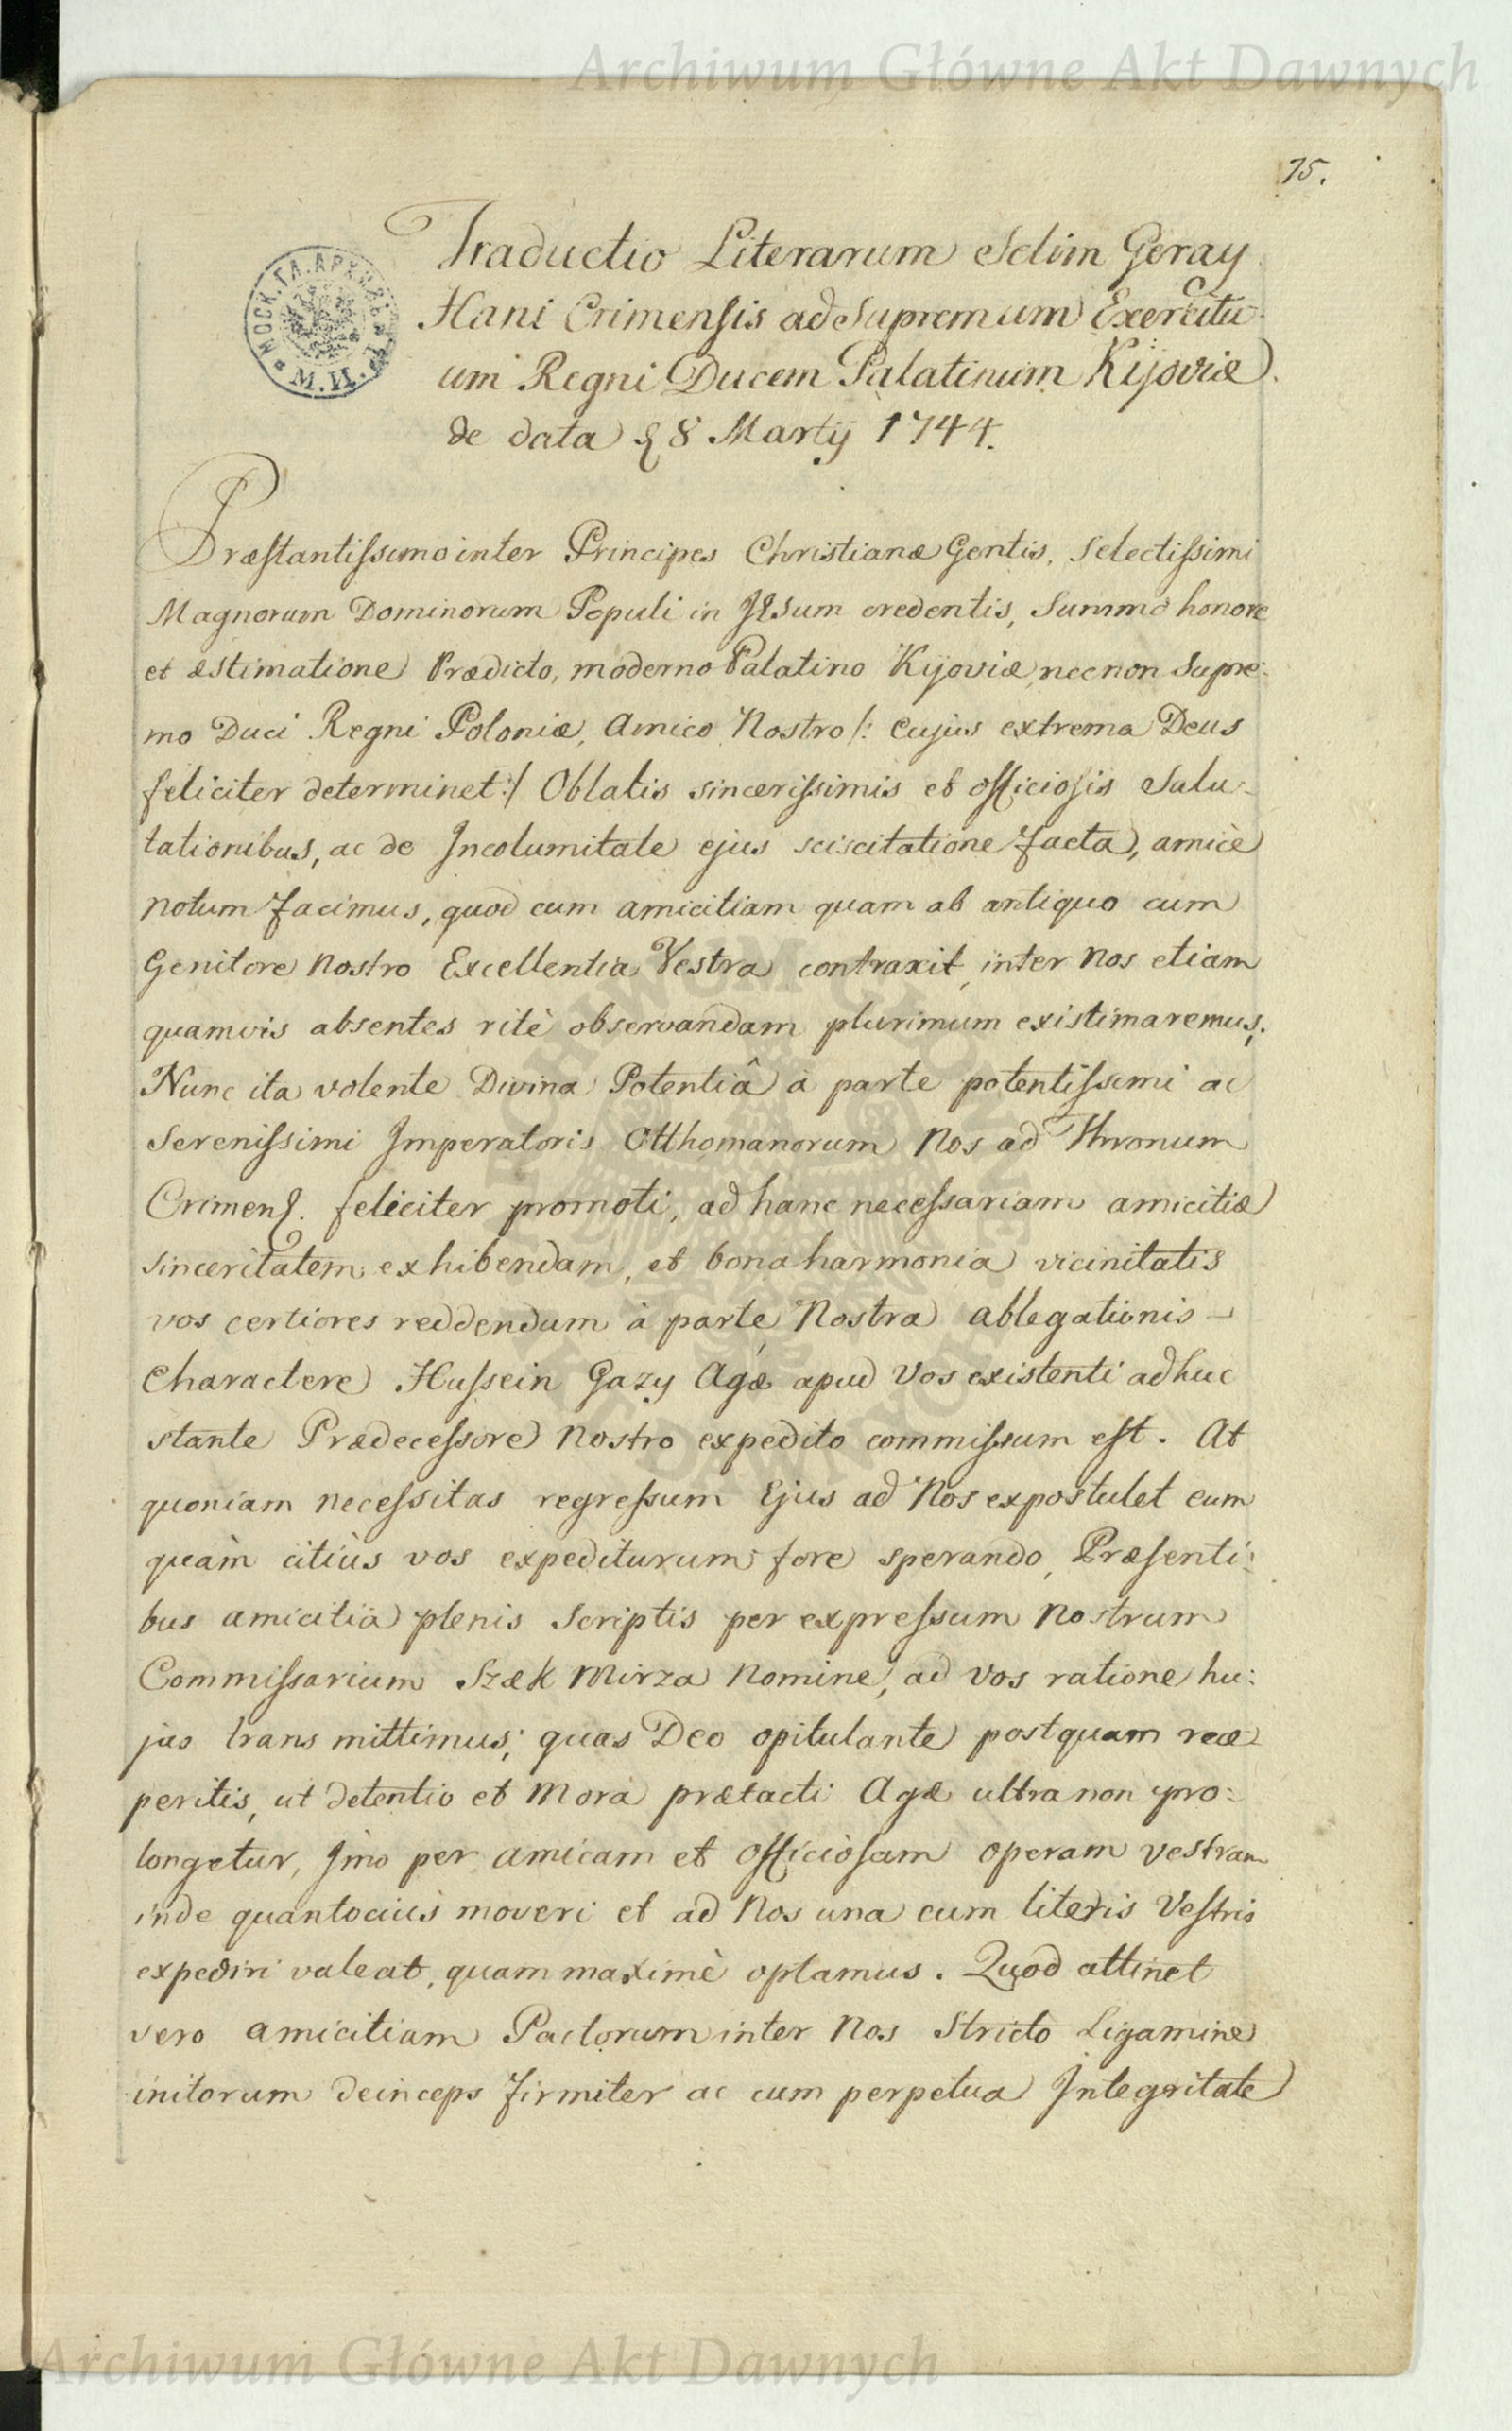 Archiwum Główne Akt Dawnych
75.
Traductio Literarum Selim Geray
Hani Crimensis ad Supremum Exercitu-
um Regni Ducem Palatinum Kijoviæ
de data 8 Martÿ 1744.
МОСК. ГЛ. АРХИВЪ
М. И. Д.
Præstantissimo inter Principes Christianæ Gentis, Selectissimi
Magnorum Dominorum Populi in Jesum credentis, Summo honore
et æstimatione Prædicto, moderno Palatino Kijoviæ necnon Supre:
mo Duci Regni Poloniæ, Amico Nostro /: Cujus extrema Deus
feliciter determinet :/ Oblatis sincerissimis et officiosis Salu:
tationibus, ac de Incolumitate ejus sciscitatione facta, amicè
notum facimus, quod cum amicitiam quam ab antiquo cum
Genitore Nostro Excellentia Vestra contraxit, inter Nos etiam
quamvis absentes ritè observandam plurimum existimaremus;
Nunc ita volente Divina Potentiâ à parte potentissimi ac
Serenissimi Imperatoris Otthomanorum Nos ad Thronum
Crimens. feliciter promoti, ad hanc necessariam amicitiæ
sinceritatem exhibendam, et bona harmonia vicinitatis
vos certiores reddendum à parte Nostra ablegationis
Charactere Hussein Gazy Agæ apud Vos existenti adhuc
stante Prædecessore Nostro expedito commissum est. At
quoniam necessitas regressum Ejus ad Nos expostulet eum
quàm citiùs vos expediturum fore sperando, Præsenti:
bus amicitiâ plenis Scriptis per expressum Nostrum
Commissarium Szæk Mirza Nomine, ad Vos ratione hu:
jus trans mittimus; quas Deo opitulante postquam rece
peritis, ut detentio et Mora prætacti Agæ ultra non pro:
longetur, Jmo per amicam et officiosam operam vestram
inde quantociùs moveri et ad Nos una cum literis Vestris
expediri valeat, quam maximè optamus. Quod attinet
vero amicitiam Pactorum inter Nos Stricto Ligamine
initorum deinceps firmiter ac cum perpetua Integritate
ARCHIWUM GŁÓWNE AKT DAWNYCH
Archiwum Główne Akt Dawnych